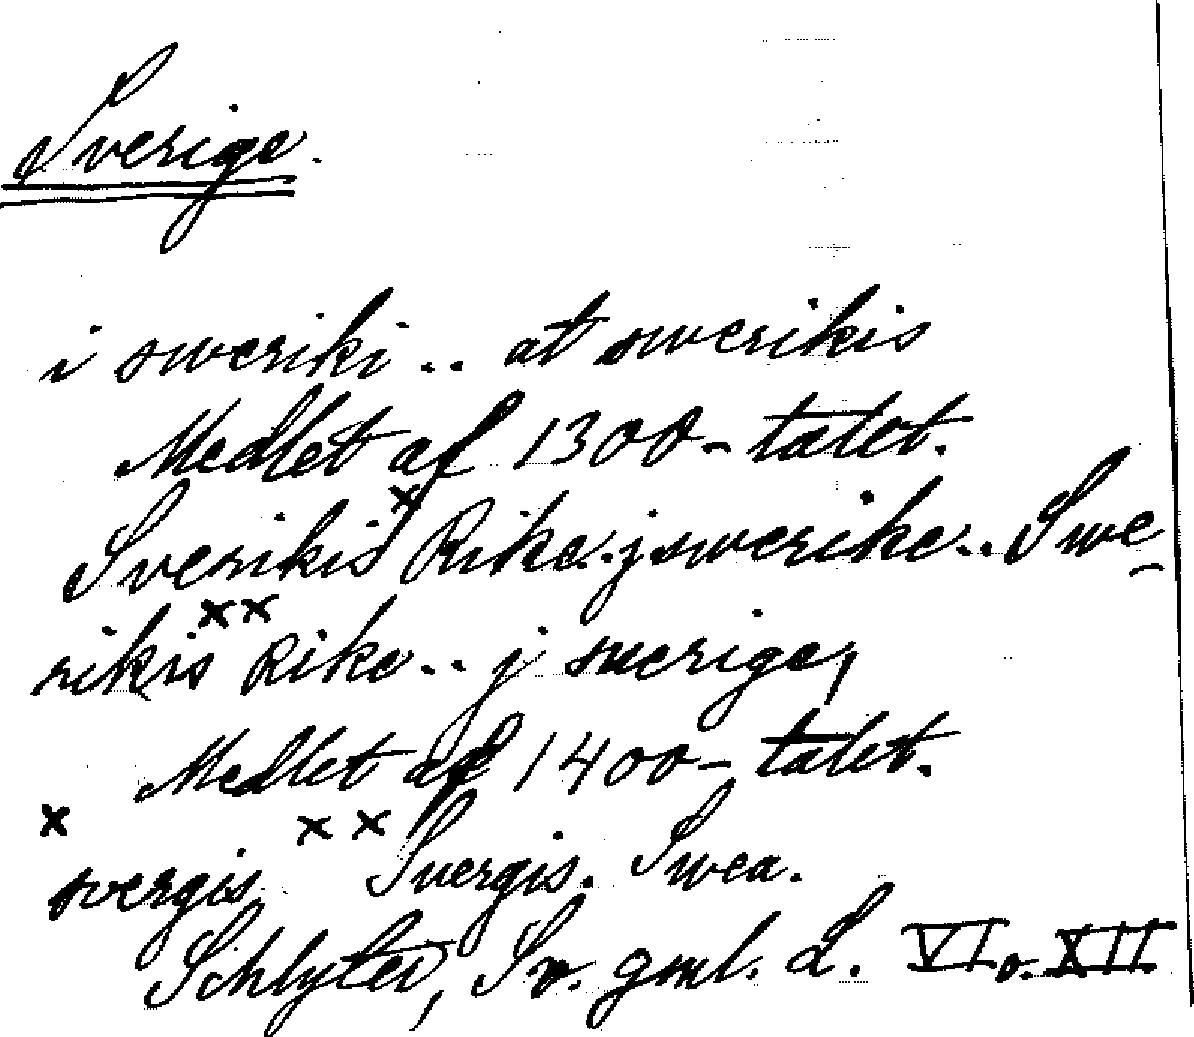 Sverige.
i sweriki .. at swerikis
Medlet af 1300-talet.
x
Sverikis Rike. j swerike .. Swe-
x x
rikis Rike .. j swerige,
Medlet af 1400-talet.
x x x
svergis Suergis. Swea.
Schlyter, Sv. gml. L. VI o. XII.